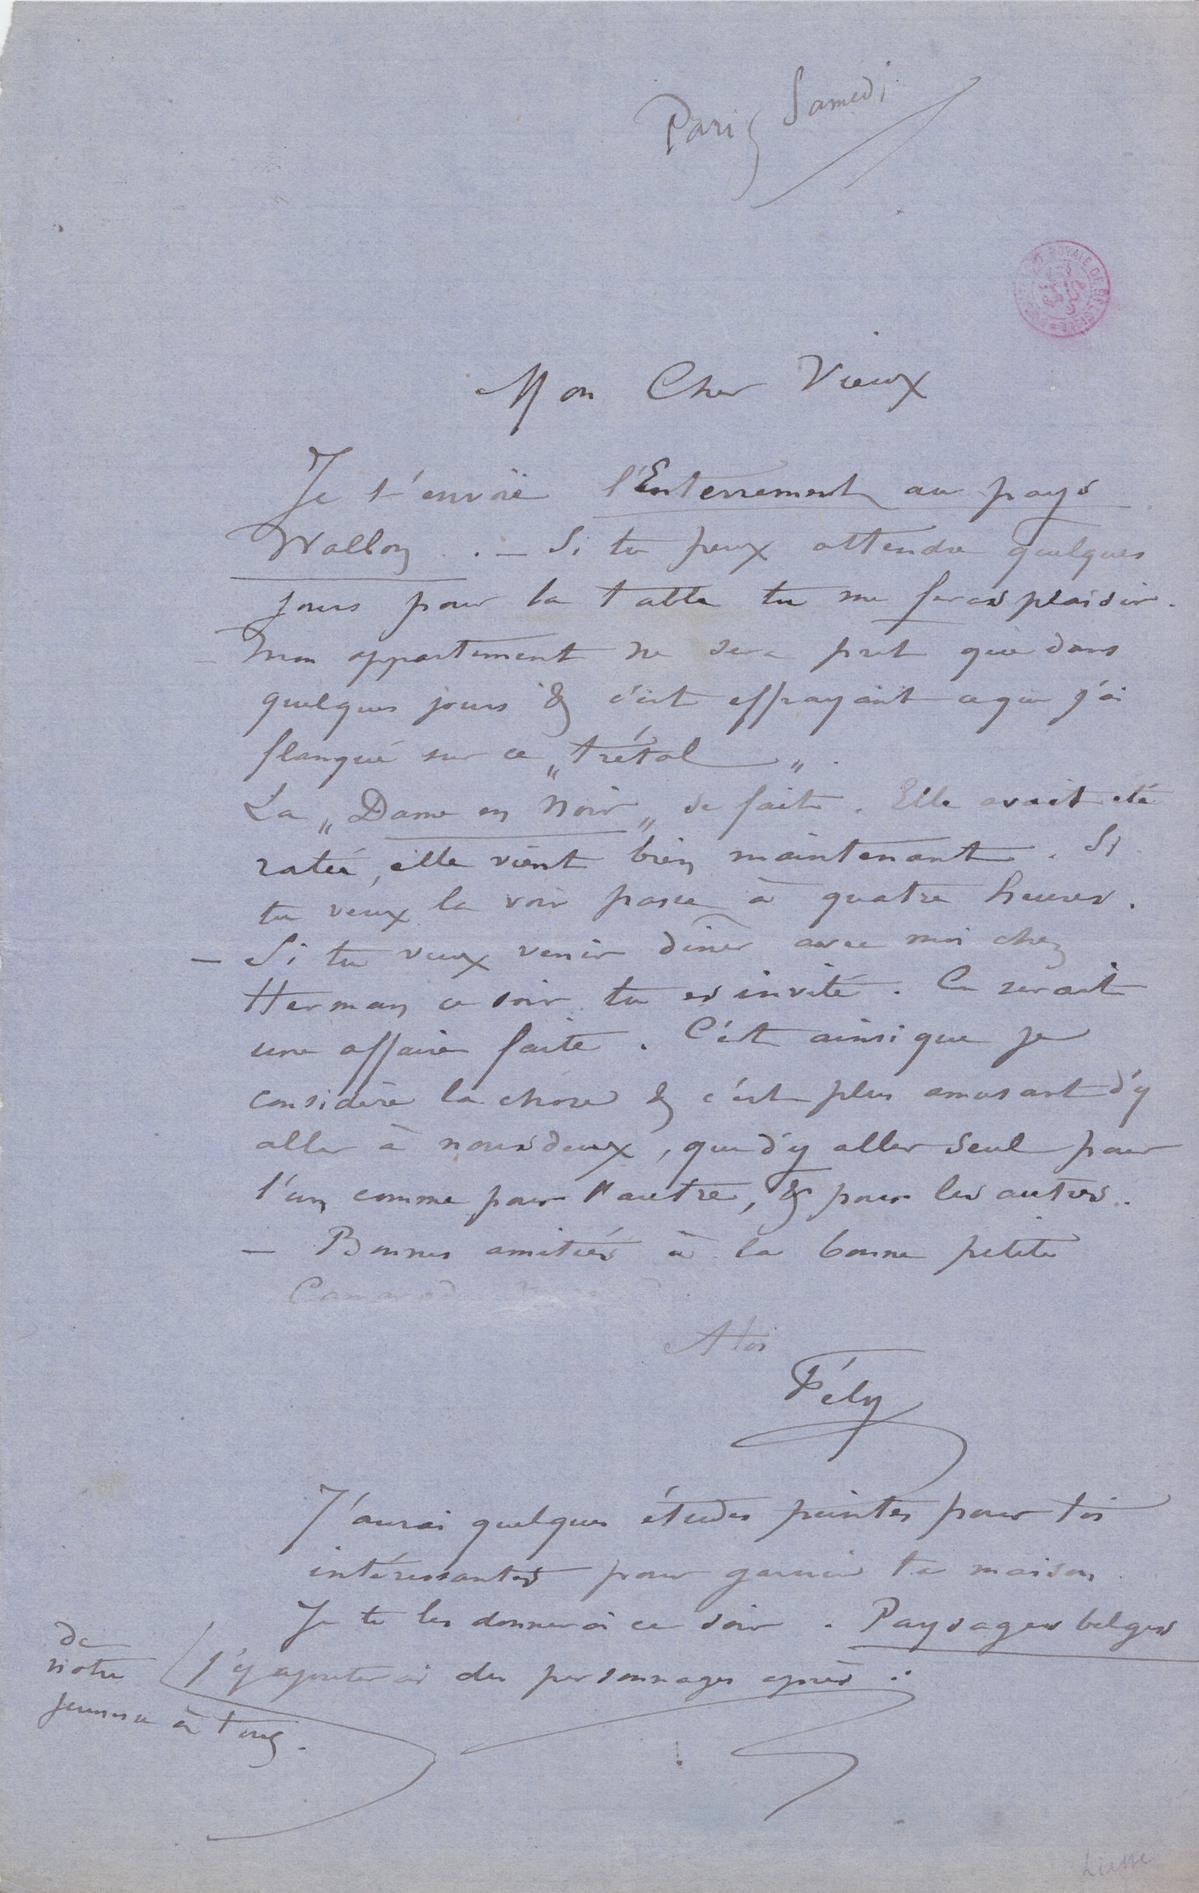 Paris Samedi
Mon Cher Vieux
Je t'envoie l'Enterrement au pays
Wallon. — Si tu peux attendre quelques
jours pour la table tu me feras plaisir.
— Mon appartement ne sera pret que dans
quelques jours & c'est effrayant ce que j'ai
flanqué sur ce „trétal„.
La „Dame en Noir„ se fait. Elle avait été
ratée, elle vient bien maintenant. Si
tu veux la voir passe à quatre heures.
— Si tu veux venir dîner avec moi chez
Herman ce soir tu es invité. Ce serait
une affaire faite. C'est ainsi que je
considère la chose & c'est plus amusant d'y
aller à nous deux, que d'y aller seul pour
l'un comme pour l'autre, & pour les autres..
— Bonnes amitiés à la bonne petite
Camarade
A toi
Fély
J'aurai quelques études peintes pour toi
intéressantes pour garnir ta maison
Je te les donnerai ce soir. Paysages belges
j'y ajouterai des personnages après..
de
notre
jeunesse à tous.